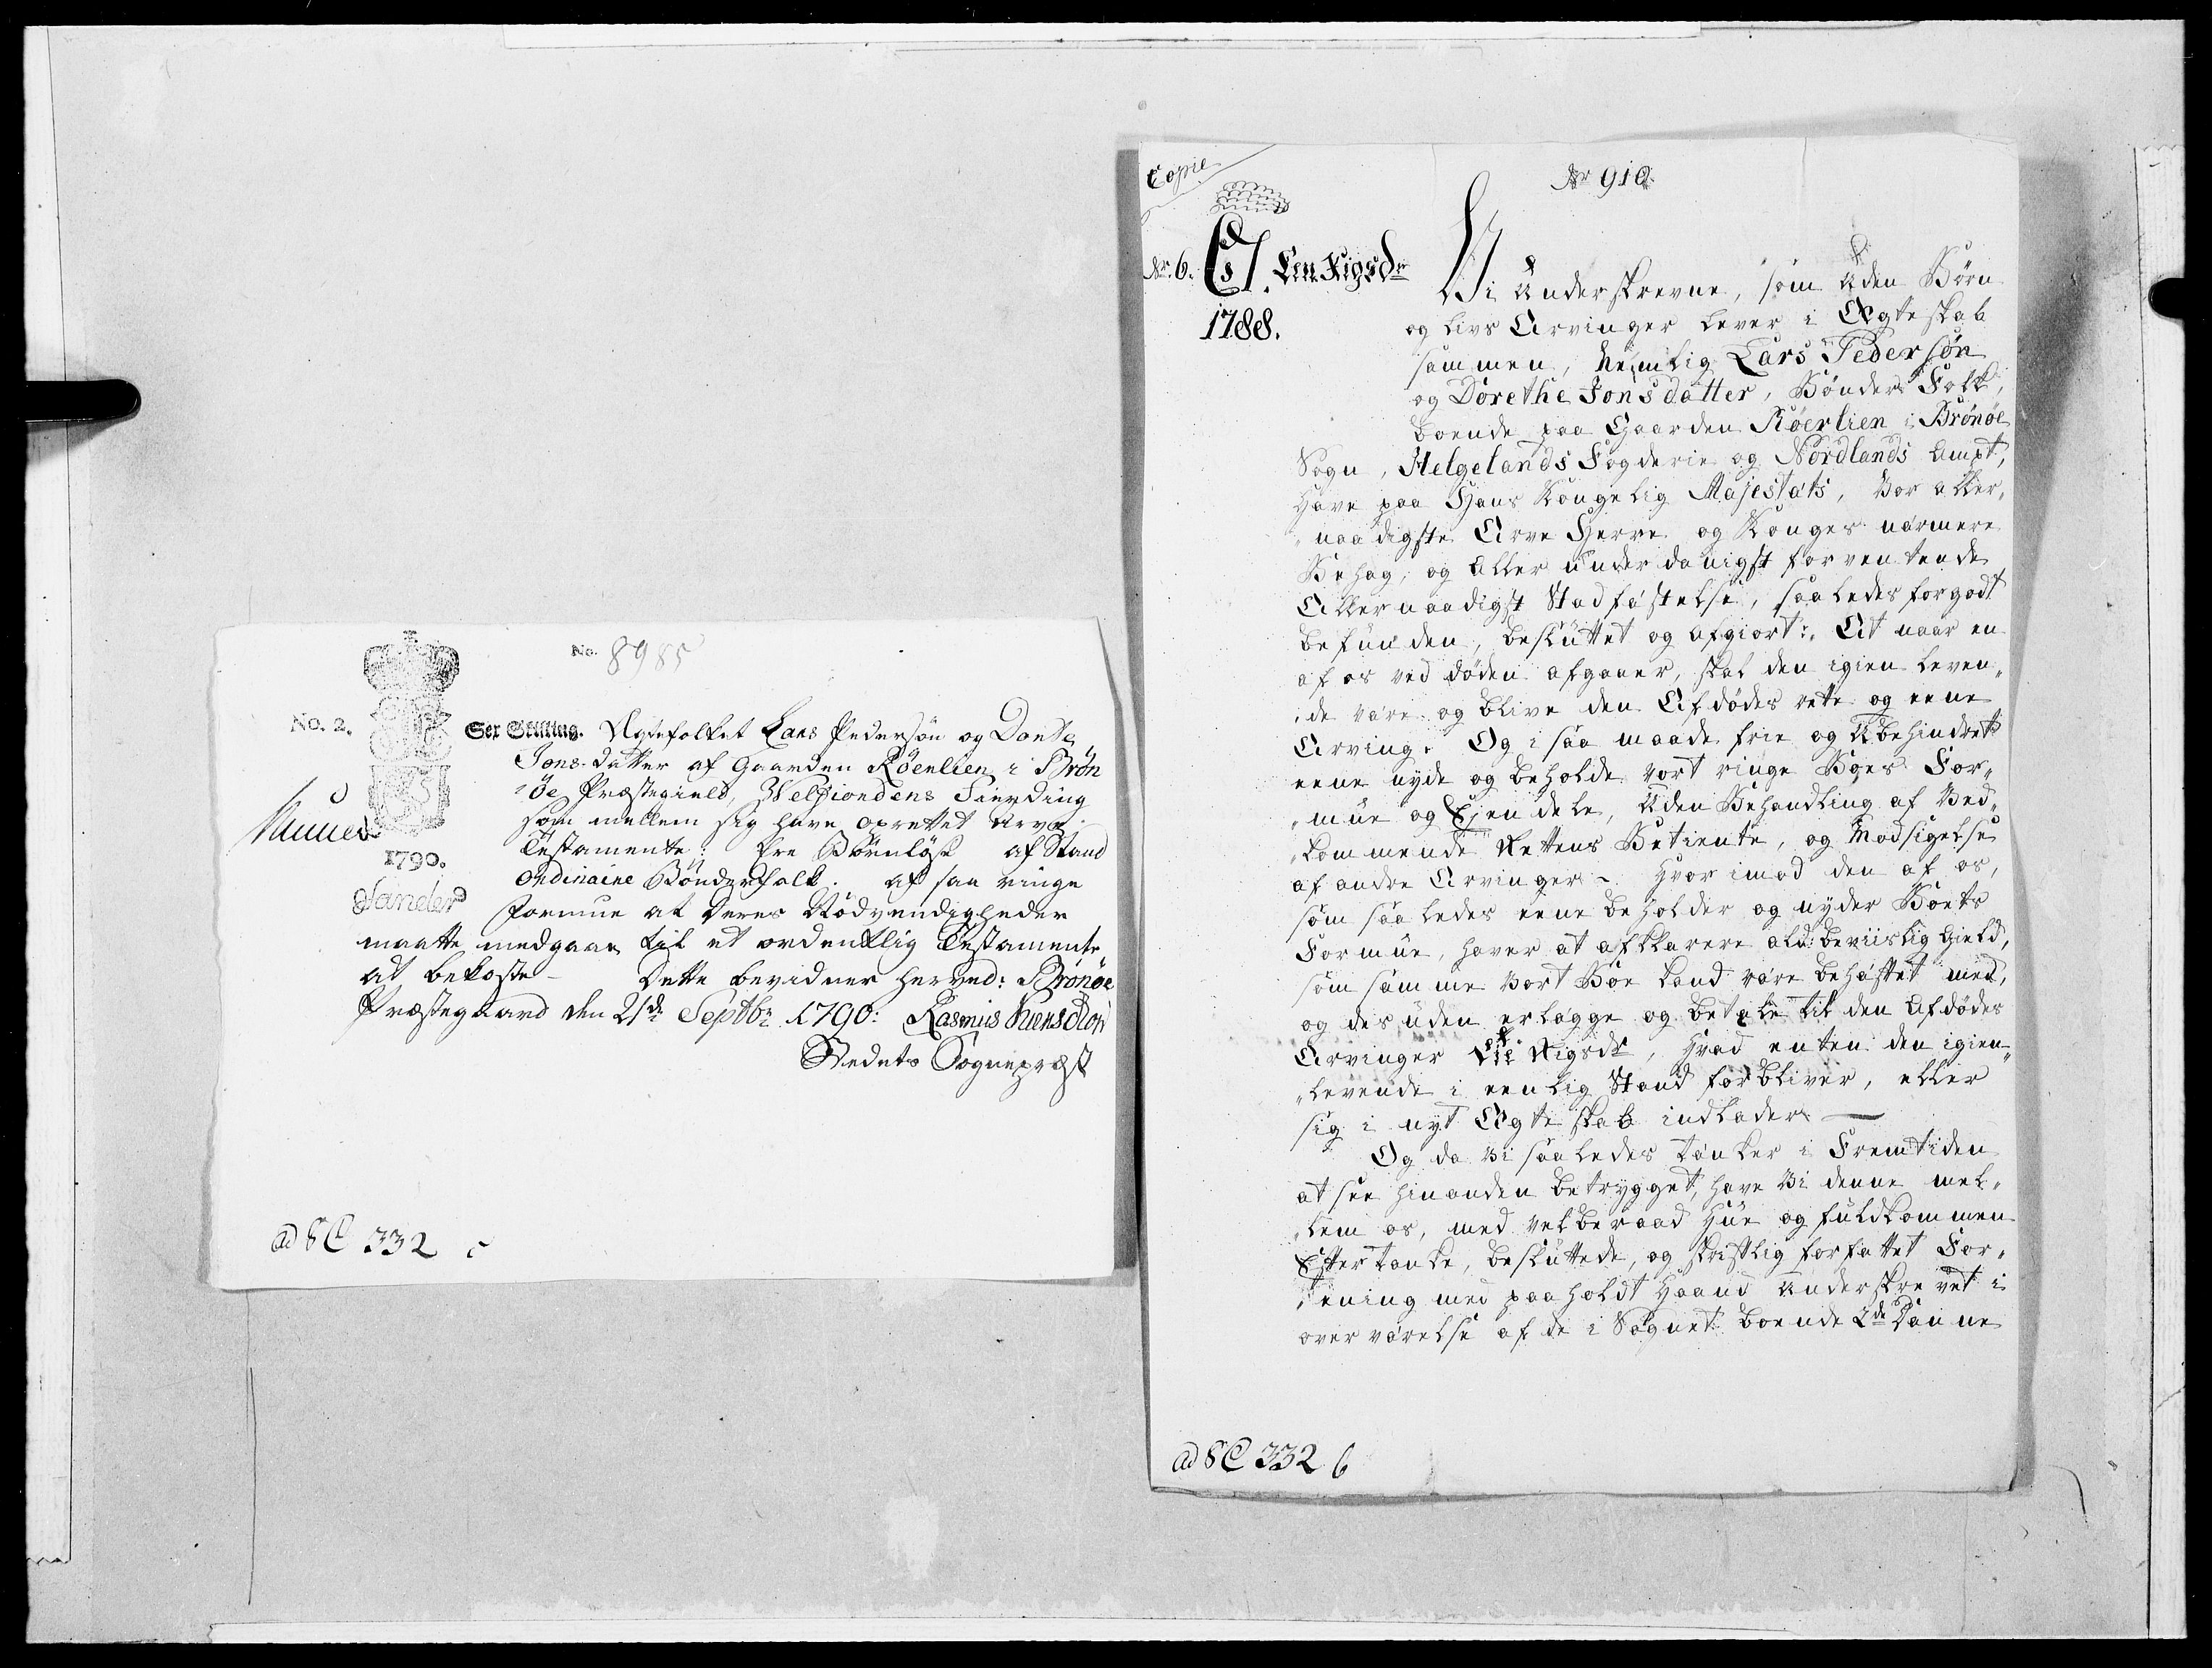 No. 8985
No. 2.
Sex Skilling. Ægtefolket Lars Pedersøn og Dorte
Jons-datter af Gaarden Röenlien i Brön
öe Præstegield, Welfiordens Fierding
som mellem sig have oprettet Arve-
Testamente; Ere Börnlöse af Stand
1790.
ordinaire Bönderfolk. af saa ringe
formue at deres Nödvendigheder
maatte medgaae til et ordentlig Testamente
at bekoste - Dette bevidner herved: Brönöe
Præstegaard den 21de Septbr 1790: Rasmus
Stedets Sognepræst
ad SC 332 c
Copie
No 910.
No. 6. C7. Een Rigsdr
1788.
Vi Underskrevne, som Uden Börn
og livs Arvinger lever i Ægteskab
sammen, Nemlig Lars Pedersøn
og Dorethe Jonsdatter, Bönder Folk,
boende paa Gaarden Röerlien i Brönöe
Sogn, Helgelands Fogderie og Nordlands Ampt,
Have paa Hans Kongelig Majestæts, Vor aller,,
,,naadigste Arve Herre og Konges nærmere
Behag, og Aller underdanigst forventende
Allernaadigst Stadfæstelse, saaledes forgodt
befunden, besluttet og afgiort:, At naar en
af os ved döden afgaaer, skal den igien leven,,
,,de være og blive den Afdödes rette og eene
Arving. Og i saa maade frie og Ubehindret
eene nyde og beholde vort ringe Boes For,,
,,mue og Ejendele, Uden Behandling af Ved,,
,,kommende Rettens Betiente, og Modsigelse
af andre Arvinger -. Hvorimod den af os,
som saaledes eene beholder og nyder Boets
Formue, haver at afklarere ald beviislig Gield,
som samme Vort Boe kand være behæftet med,
og desuden erlægge og betale til den Afdödes
Arvinger Rigsdr, Hvad enten den igien,,
,,levende i eenlig Stand forbliver, eller
sig i nyt Ægteskab indlader —
Og da Vi saaledes tænker i Fremtiden
at see hinanden betrygget, have Vi denne mel,,
,,lem os, med velberaad Hue og fuldkommen
Eftertanke, besluttede, og skriftlig forfattet For,,
,,ening med paaholdt Haand Underskrevet i
overværelse af de i Sognet boende 2de Danne
ad SC 332 b